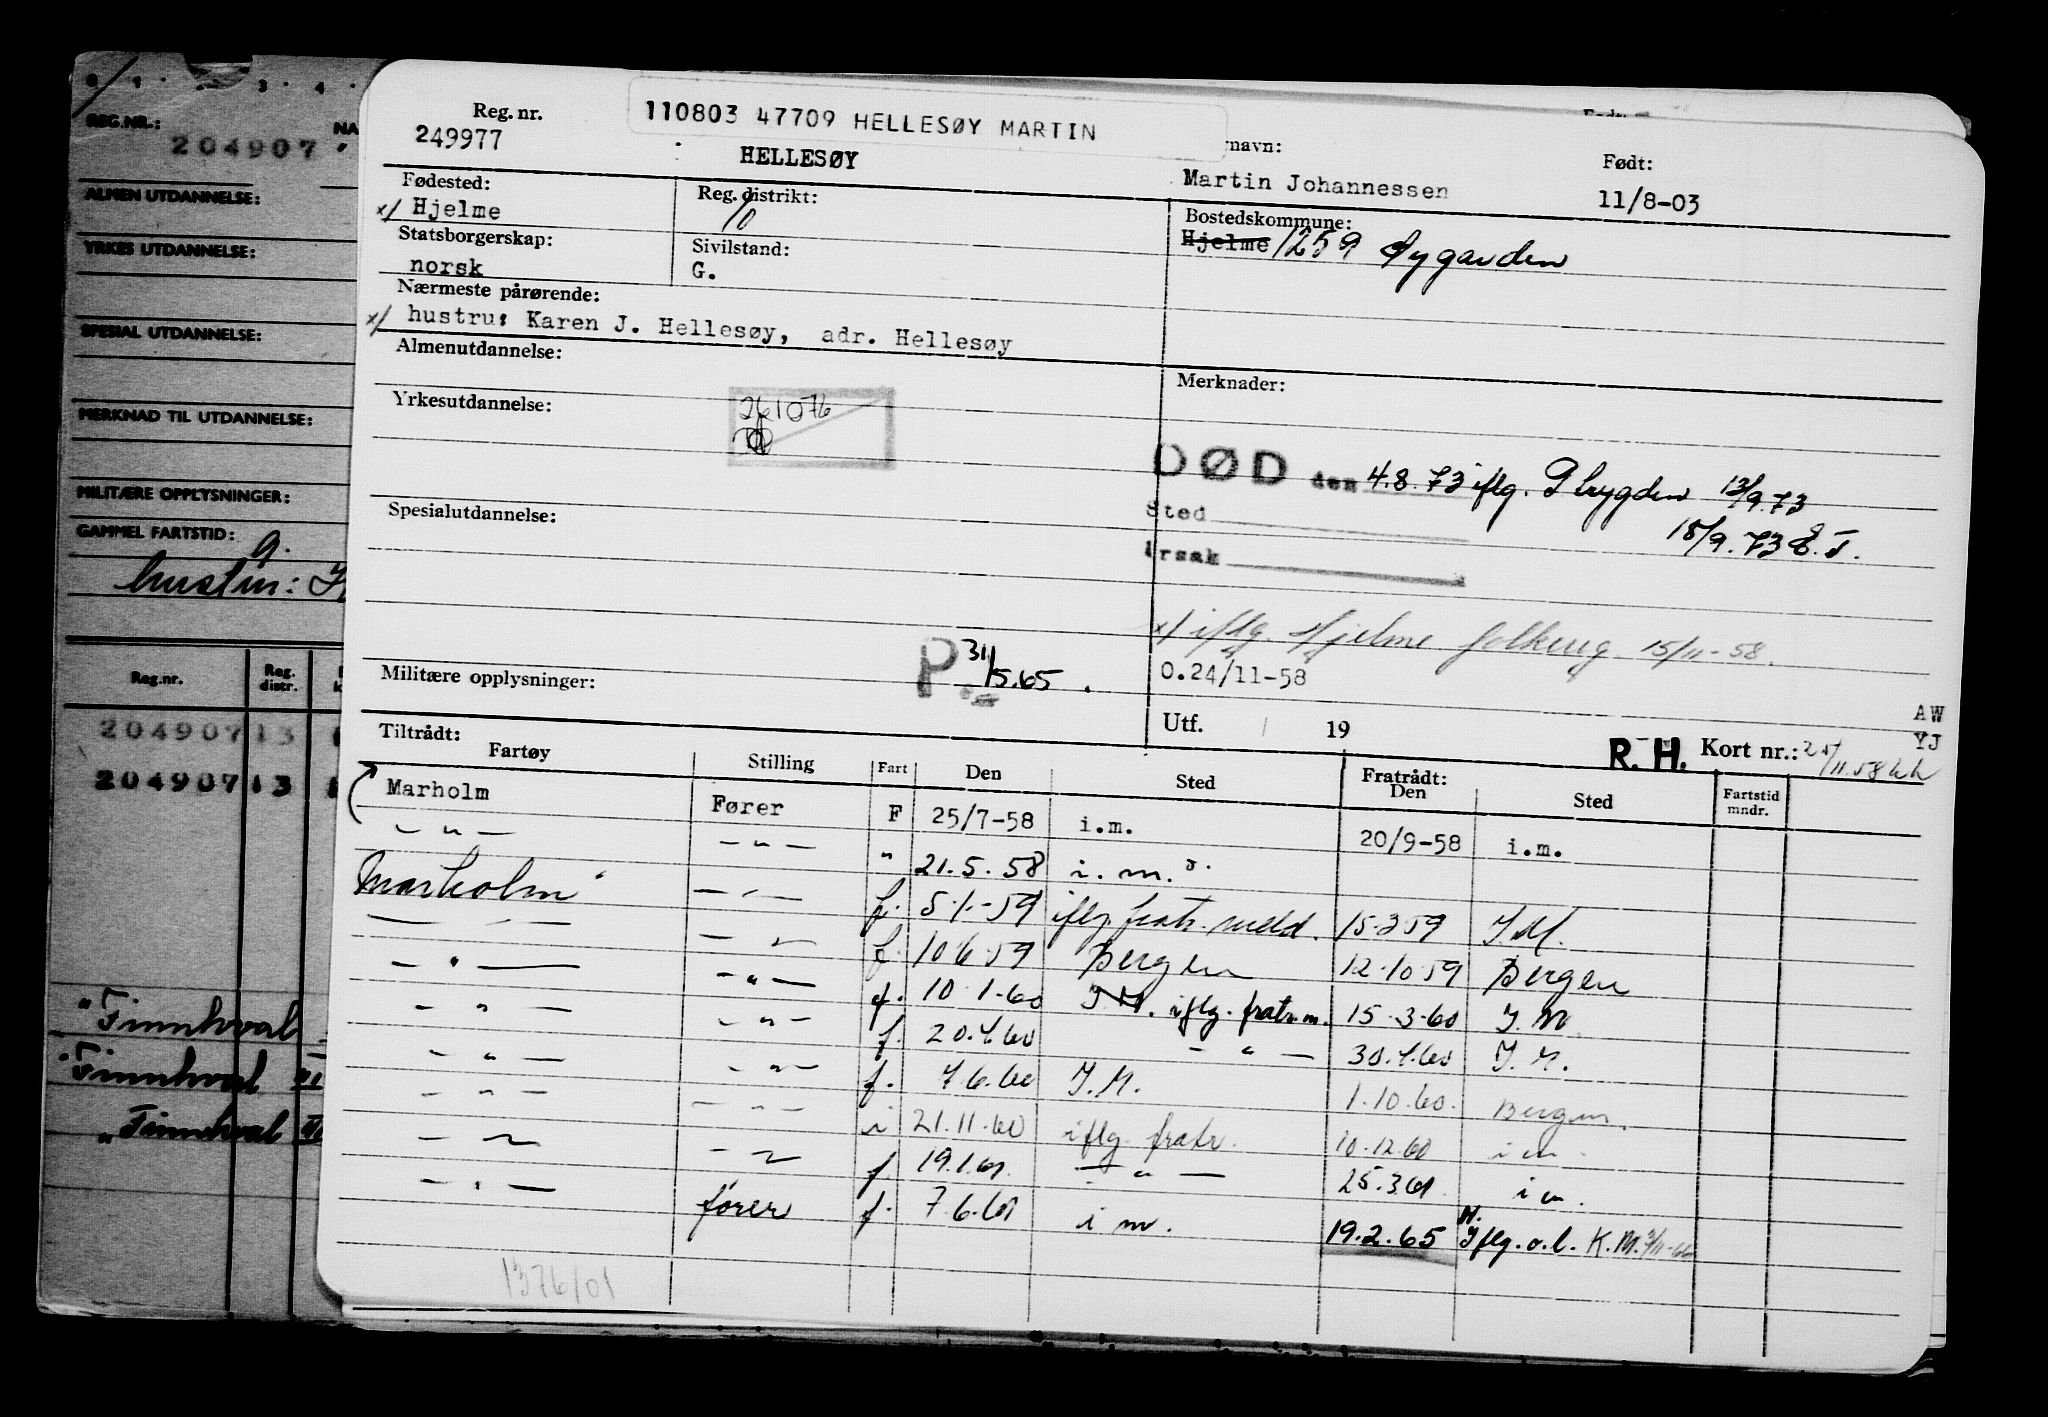 0 1 3 4
REG.NR.: NA
204907
ALMEN UTDANNELSE:
YRKES UTDANNELSE:
SPESIAL UTDANNELSE:
MERKNAD TIL UTDANNELSE:
MILITÆRE OPPLYSNINGER:
GAMMEL FARTSTID: g.
hustru:
Reg.nr. Reg. distr.
204907 13
204907 13
"Finnhval
"Finnhval
"Finnhval
110803 47709 HELLESØY MARTIN
Reg. nr. rnavn: Født:
249977 HELLESØY Martin Johannessen 11/8-03
Fødested: Reg. distrikt: Bostedskommune:
x/ Hjelme 10 Hjelme 1259 Øygarden
Statsborgerskap: Sivilstand:
norsk G.
Nærmeste pårørende:
x/ hustru: Karen J. Hellesøy, adr. Hellesøy
Almenutdannelse: Merknader:
Yrkesutdannelse: 261076
DØD den 4.8.73 iflg. 13/9.73
Sted 18/9.73 E.T.
Spesialutdannelse:
Årsak
x/ iflg. Hjelme folkereg. 15/11-58.
P 31/5.65.
Militære opplysninger: 0.24/11-58
AW
Utf. 19 YJ
R.H. Kort nr.:
Tiltrådt: Fratrådt:
Fartøy Stilling Fart Den Sted Den Sted Fartstid mndr.
Marholm Fører F 25/7-58 i.m. 20/9-58 i.m.
— " — — " — " 21.5.58 i.m.
Marholm — " — f. 5.1.-59 iflg fratr. meld. 15.3.59 I.M.
— " — — " — f. 10.6.59 Bergen 12.10.59 Bergen
— " — — " — f. 10.1.60 I.M. iflg. fratr.m. 15.3.60 I.M.
— " — — " — f. 20.4.60 — " — 30.4.60 I.M.
— " — — " — f. 7.6.60 I.M. 1.10.60. Bergen.
— " — — " — i 21.11.60 iflg. fratr. 10.12.60 i m.
— " — — " — f 19.1.61. — " — 25.3.61. i m.
— " — fører f. 7.6.61 i m. 19.2.65 Iflg. o.l. K.M.
1376/01